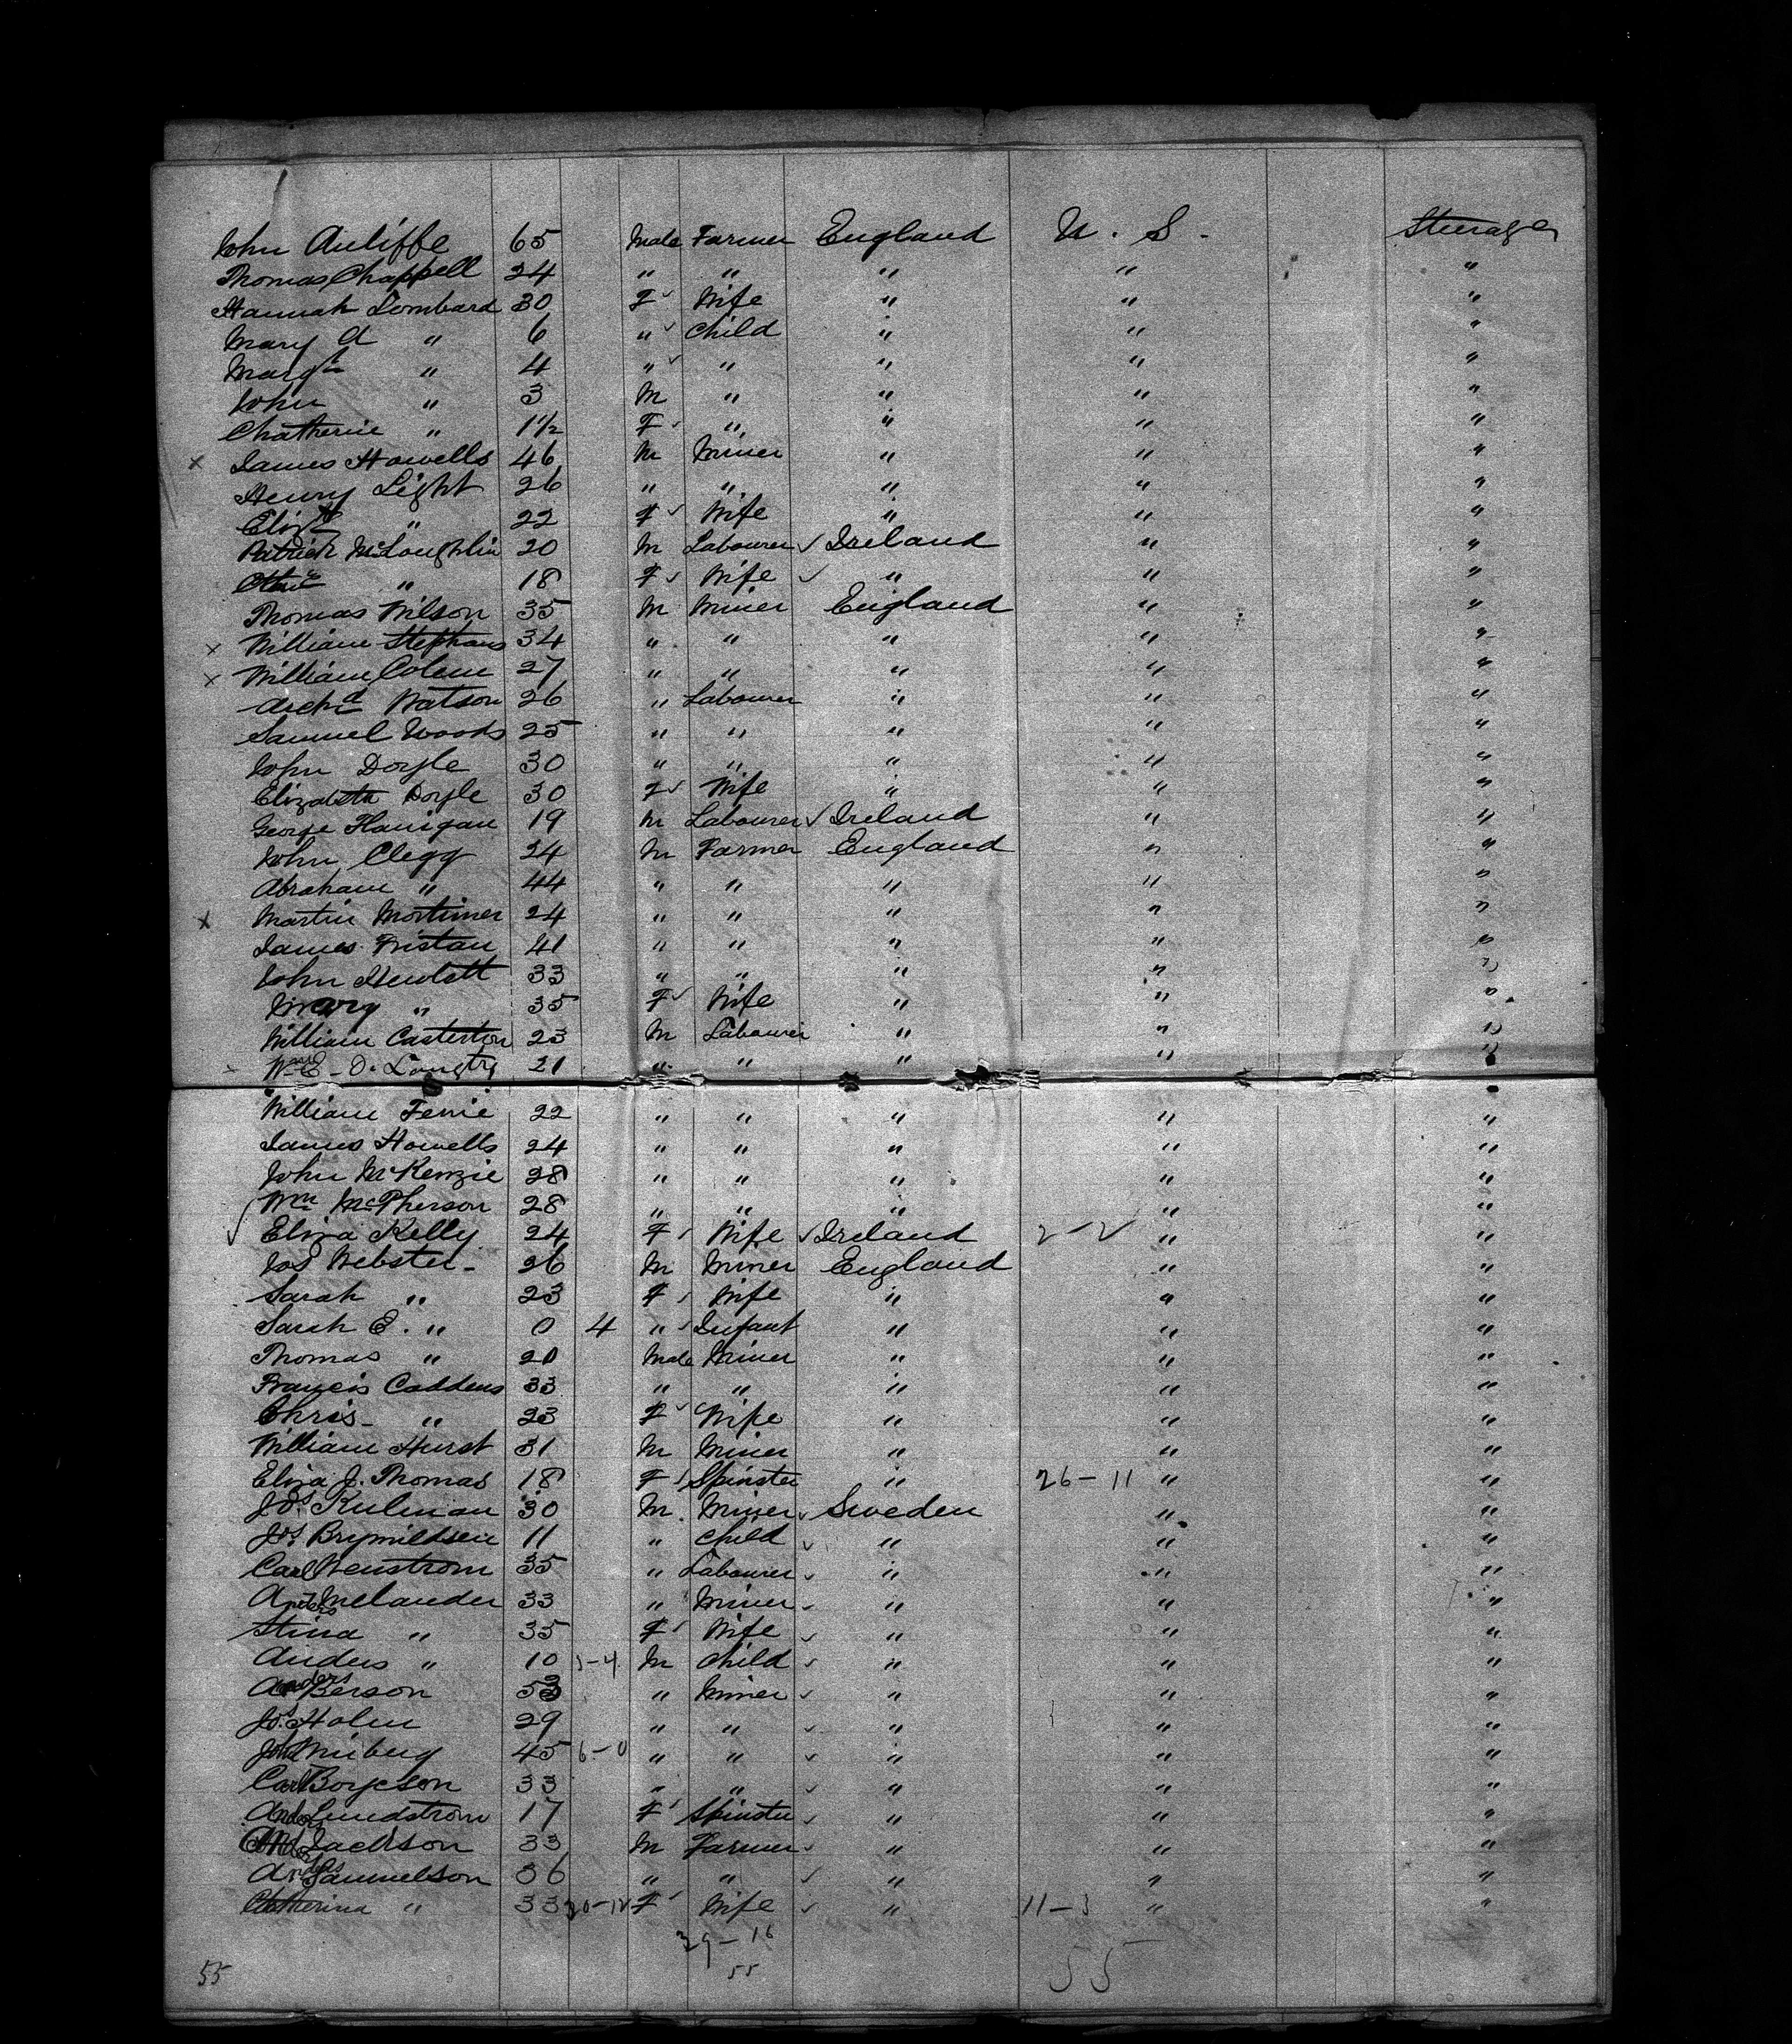 John Auliffe 65 Male Farmer England U. S. Steerage
Thomas Chappell 24 " " " " "
Hannah Lombard 30 F Wife " " "
Mary A " 6 " Child " " "
Margt " 4 " " " " "
John " 3 M " " " "
Chatherine " 1½ F " " " "
x James Howells 46 M Miner " " "
Henry Light 26 " " " " "
Elizth " 22 F Wife " " "
Patrick McLoughlin 20 M Labourer Ireland " "
" 18 F Wife " " "
Thomas Wilson 35 M Miner England " "
x William Stephans 34 " " " " "
x William Colem 27 " " " " "
Archd Watson 26 " Labourer " " "
Samuel Woods 25 " " " " "
John Doyle 30 " " " " "
Elizabeth Doyle 30 F Wife " " "
George Flanigan 19 M Labourer Ireland " "
John Clegg 24 M Farmer England " "
Abraham " 44 " " " " "
x Martin Mortimer 24 " " " " "
James Tristan 41 " " " " "
John Hewlett 33 " " " " "
Mary " 35 F Wife " " "
William Casterton 23 M Labourer " " "
E. D. Langtry 21 " " " " "
William Fenie 22 " " " " "
James Howells 24 " " " " "
John McKenzie 28 " " " " "
Wm McPherson 28 " " " " "
Eliza Kelly 24 F Wife Ireland " "
Jos Webster 26 M Miner England " "
Sarah " 23 F Wife " " "
Sarah E. " 0 4 " Infant " " "
Thomas " 20 Male Miner " " "
Francis Caddens 33 " " " " "
Chris " 23 F Wife " " "
William Hurst 31 M Miner " " "
Eliza J. Thomas 18 F Spinster " 26-11 " "
Jos. Kulman 30 M Miner Sweden " "
Jos Brymildsen 11 " Child " " "
Carl Wenstrom 35 " Labourer " " "
Anders Melander 33 " Miner " " "
Stina " 35 F Wife " " "
Anders " 10 M Child " " "
Anders Berson 53 " Miner " " "
Jos. Holm 29 " " " " "
Joh Miberg 45 6-0 " " " " "
Carl Borjeson 33 " " " " "
Anders Lundstrom 17 F Spinster " " "
Jackson 33 M Farmer " " "
Anders Samuelson 36 " " " " "
Catherina " 33 F Wife " 11-3 " "
39-16
55 55 55